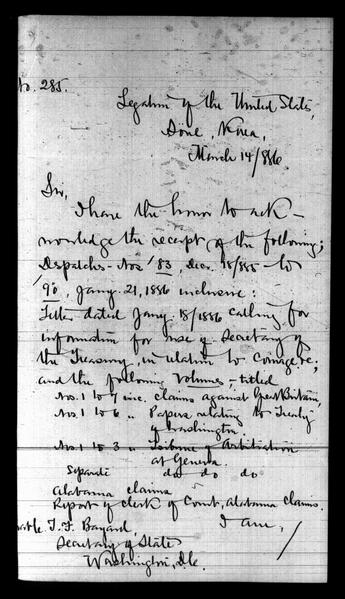 No. 285.
Legation of the United States,
Söul, Korea,
March 14/886
Sir,
I have the honor to ack-
nowledge the receipt of the following:
Despatches Nos '83, Dec. 18/885 to
'90, Jany. 21, 1886 inclusive:
Letter dated Jany. 18/1886 calling for
information for use of Secretary of
the Treasury, in relation to Coinage &c;
and the following Volumes, titled
Nos. 1 to 7 inc. claims against Great Britain,
Nos. 1 to 6 " Papers relating to Treaty
of Washington,
Nos. 1 to 3 " Tribune of Arbitration
at Geneva.
Separate do do do
Alabama claims
Report of clerk of Court, Alabama claims.
I am,
T. F. Bayard,
Secretary of State
Washington, D.C.